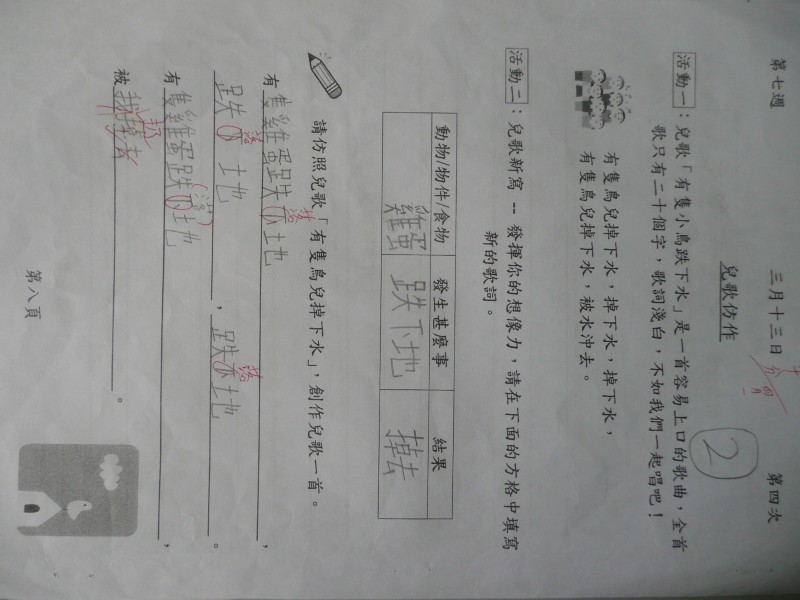 第七週 三月十三日 第四次
兒歌仿作
2
活動一：兒歌「有隻小鳥跌下水」是一首容易上口的歌曲，全首
歌只有二十個字，歌詞淺白，不如我們一起唱吧！
有隻鳥兒掉下水，掉下水，掉下水，
有隻鳥兒掉下水，被水沖去。
活動二：兒歌新寫 -- 發揮你的想像力，請在下面的方格中填寫
新的歌詞。
動物/物件/食物 發生甚麼事 結果
雞蛋 跌下地 掉去
請仿照兒歌「有隻鳥兒掉下水」，創作兒歌一首。
有隻雞蛋跌下落地，
跌下落地，跌下落地。
有隻雞蛋跌下落地，
被我掉去。
第八頁